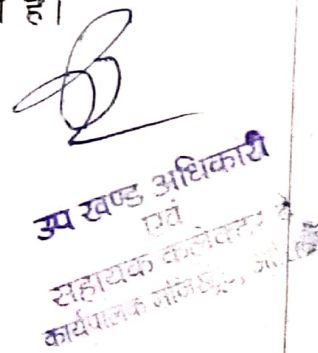 है।
उप खण्ड अधिकारी
एवं
सहायक कलेक्टर
कार्यपालक